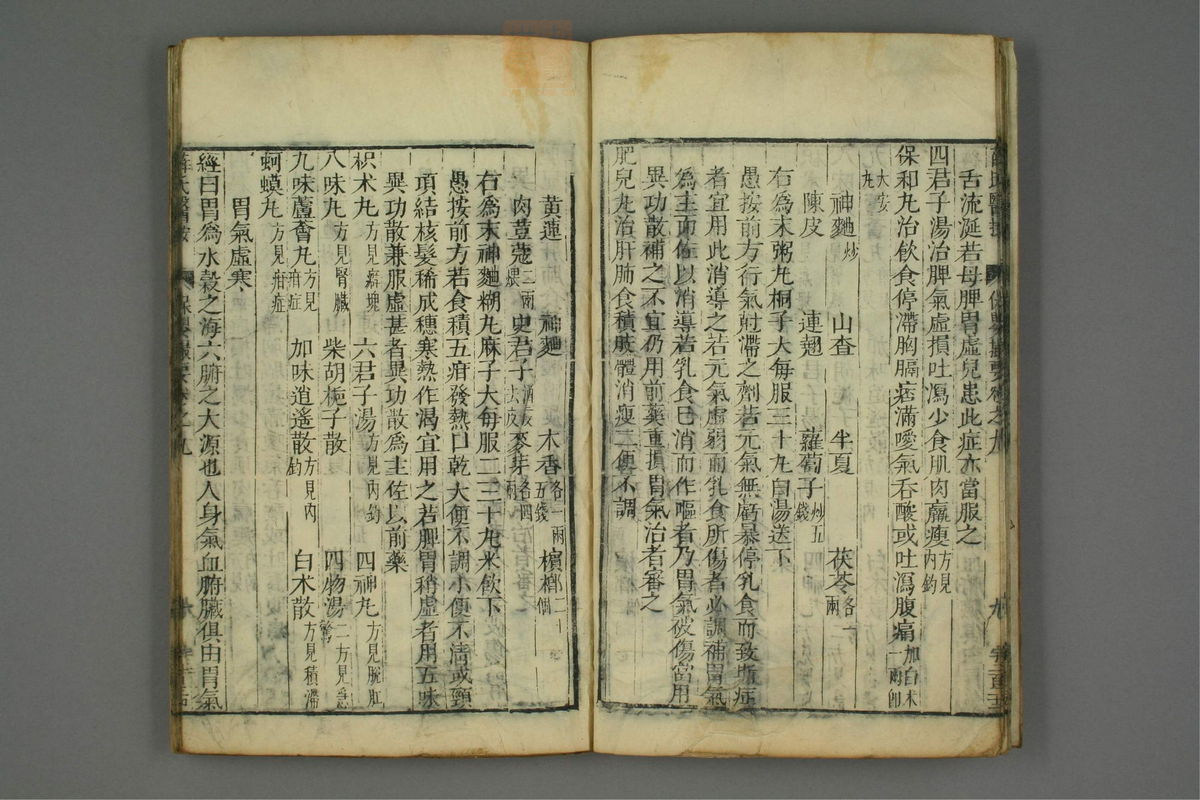 舌流涎若母脾胃虛兒患此症亦當服之
四君子湯治脾氣虛損吐瀉少食肌肉羸瘦方見內釣
保和丸治飲食停滯胸膈痞滿噯氣吞酸或吐瀉腹痛加白术一兩卽
大安丸
神麯炒 山查 半夏 茯苓各一兩
陳皮 連翹 蘿蔔子炒五錢
右爲末粥丸桐子大每服三十丸白湯送下
愚按前方行氣尅滯之劑若元氣無虧暴停乳食而致斯症
者宜用此消導之若元氣虛弱而乳食所傷者必調補胃氣
爲主而佐以消導若乳食已消而作嘔者乃胃氣被傷當用
異功散補之不宜仍用前藥重損胃氣治者審之
肥兒丸治肝肺食積肢體消瘦二便不調
黃連 神麯 木香各一兩五錢 檳榔二十個
肉荳蔻二兩煨 史君子酒浸去皮 麥芽各四兩
右爲末神麯糊丸麻子大每服二三十丸米飲下
愚按前方若食積五疳發熱口乾大便不調小便不淸或頸
項結核髮稀成穗寒熱作渴宜用之若脾胃稍虛者用五味
異功散兼服虛甚者異功散爲主佐以前藥
枳术丸方見癖塊 六君子湯方見內釣 四神丸方見脫肛
八味丸方見腎臟 柴胡梔子散 四物湯二方見急驚
九味蘆薈丸方見疳症 加味逍遙散方見內釣 白术散方見積滯
蚵蟆丸方見疳症
胃氣虛寒
經曰胃爲水穀之海六腑之大源也人身氣血腑臟俱由胃氣
薛氏醫按 保嬰撮要卷之九